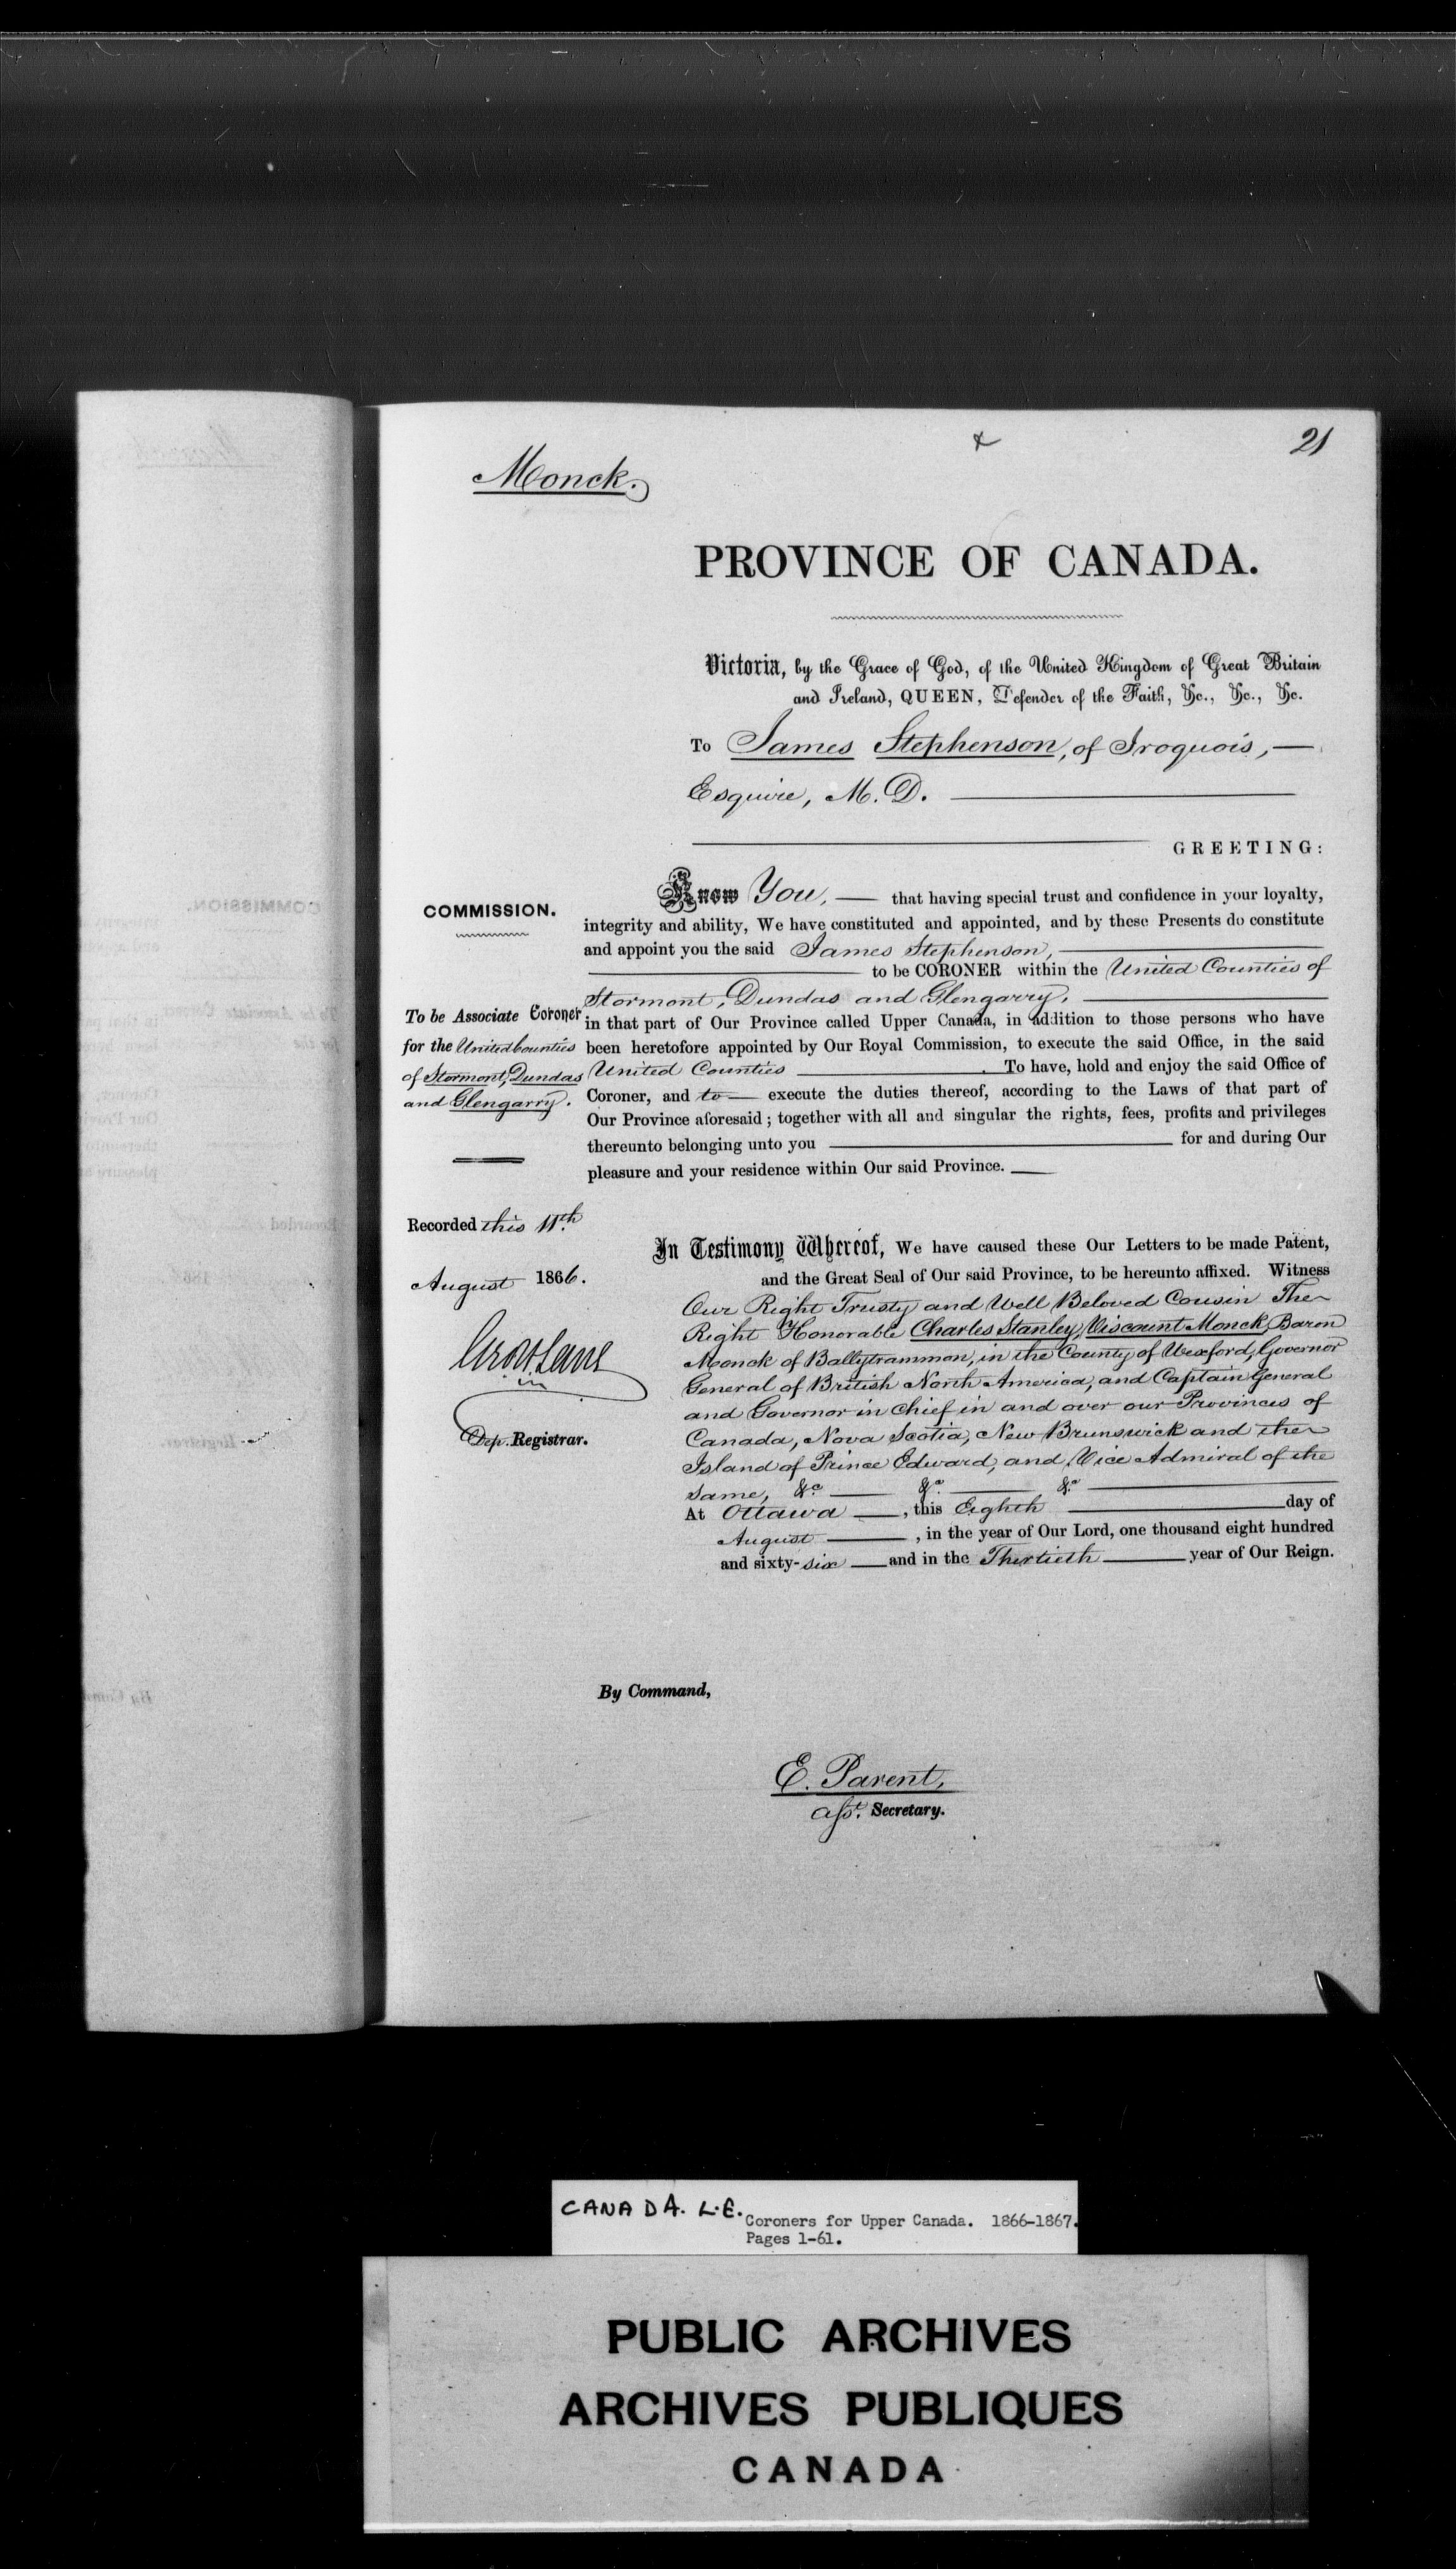 21
Monck.
PROVINCE OF CANADA.
Victoria, by the Grace of God, of the United Kingdom of Great Britain
and Ireland, QUEEN, Defender of the Faith, &c., &c., &c.
To James Stephenson, of Iroquois,
Esquire, M. D.
GREETING:
COMMISSION.
To be Associate Coroner
for the United Counties
of Stormont, Dundas
and Glengarry.
Know You, that having special trust and confidence in your loyalty,
integrity and ability, We have constituted and appointed, and by these Presents do constitute
and appoint you the said James Stephenson,
to be CORONER within the United Counties of
Stormont, Dundas and Glengarry,
in that part of Our Province called Upper Canada, in addition to those persons who have
been heretofore appointed by Our Royal Commission, to execute the said Office, in the said
United Counties . To have, hold and enjoy the said Office of
Coroner, and to execute the duties thereof, according to the Laws of that part of
Our Province aforesaid; together with all and singular the rights, fees, profits and privileges
thereunto belonging unto you for and during Our
pleasure and your residence within Our said Province.
Recorded this 11th
August 1866.
Dep. Registrar.
In Testimony Whereof, We have caused these Our Letters to be made Patent,
and the Great Seal of Our said Province, to be hereunto affixed. Witness
Our Right Trusty and Well Beloved Cousin The
Right Honorable Charles Stanley, Viscount Monck, Baron
Monck of Ballytrammon, in the County of Wexford, Governor
General of British North America, and Captain General
and Governor in Chief in and over our Provinces of
Canada, Nova Scotia, New Brunswick and the
Island of Prince Edward, and Vice Admiral of the
same, &c &c &c
At Ottawa, this Eighth day of
August, in the year of Our Lord, one thousand eight hundred
and sixty-six and in the Thirtieth year of Our Reign.
By Command,
E. Parent,
Asst. Secretary.
CANADA. L.E. Coroners for Upper Canada. 1866-1867.
Pages 1-61.
PUBLIC ARCHIVES
ARCHIVES PUBLIQUES
CANADA